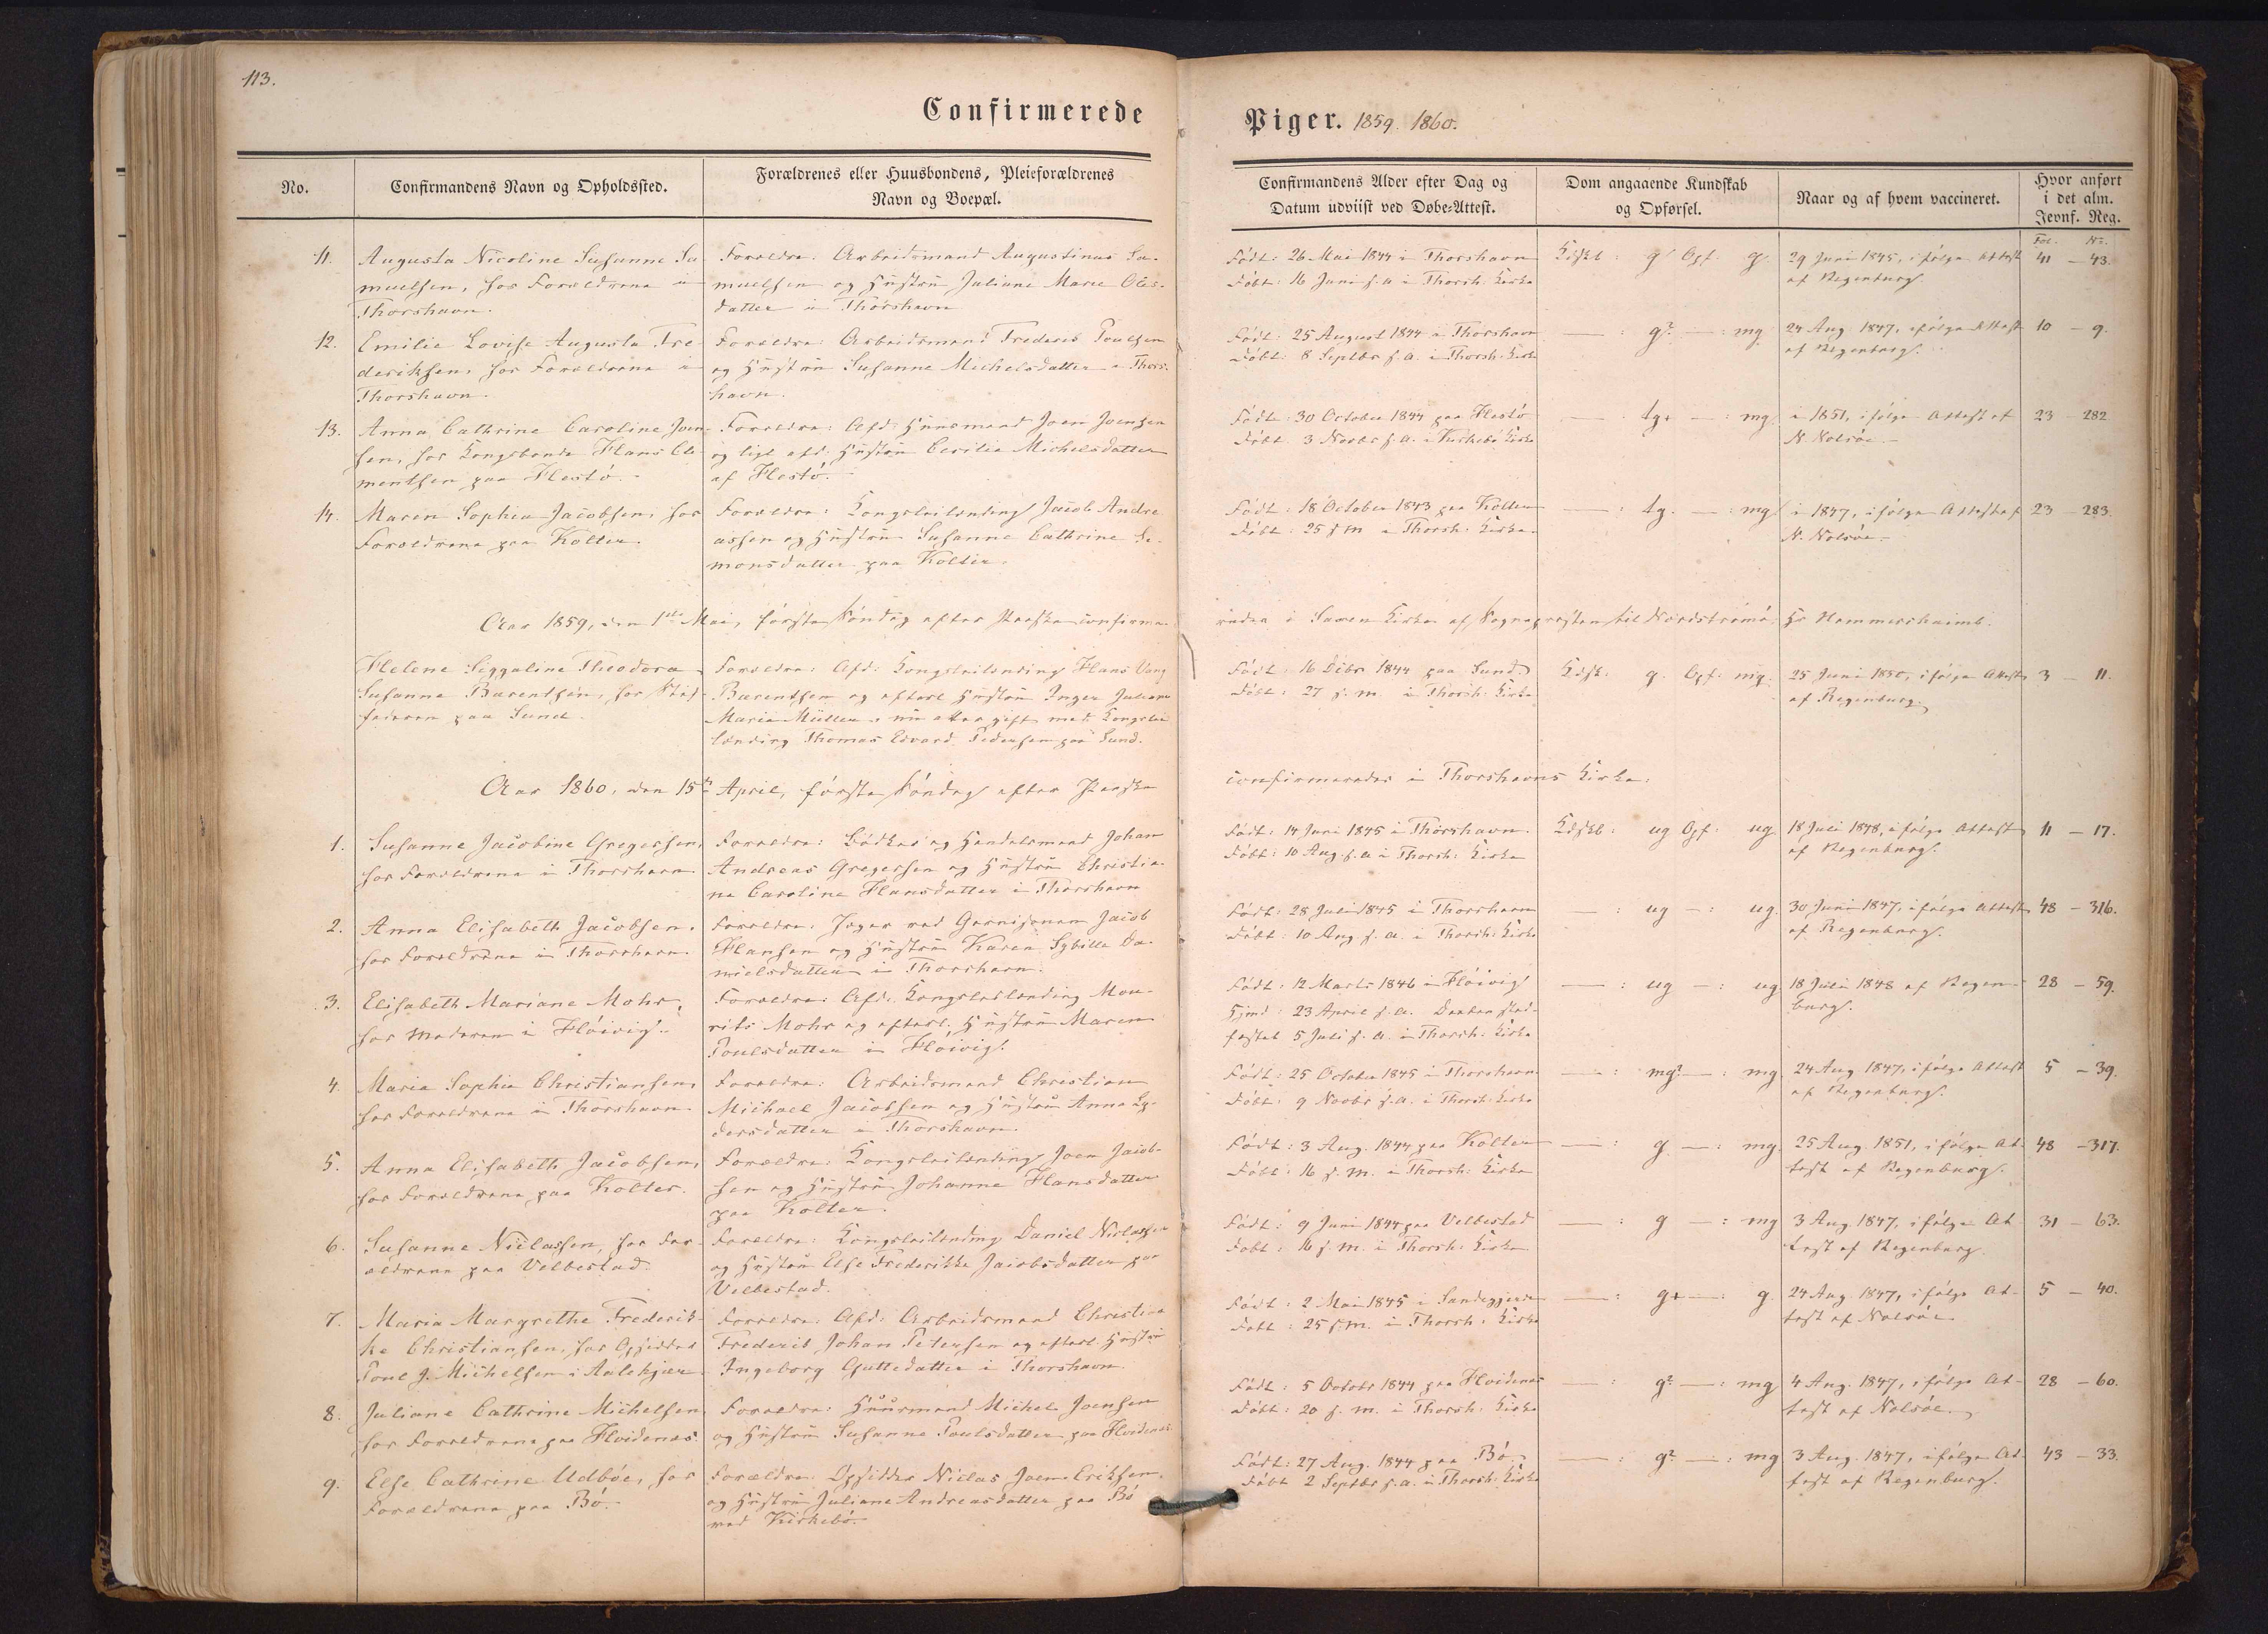 113.
Confirmerede
Piger. 1859. 1860.
No.
Confirmandens Navn og Opholdssted.
Forældrenes eller Huusbondens, Pleieforældrenes
Navn og Boepæl.
Confirmandens Alder efter Dag og
Datum udviist ved Døbe-Attest.
Dom angaaende Kundskab
og Opførsel.
Naar og af hvem vaccineret.
Hvor anført
i det alm.
Jevnf. Reg.
Fol. No.
11. Augusta Nicoline Susanne Sa-
muelsen, hos Forældrene i
Thorshavn.
Forældre: Arbeidsmand Augustinus Sa-
muelsen og Hustru Juliane Marie Oles-
datter i Thorshavn
Født: 26 Mai 1844 i Thorshavn
Døbt: 16 Juni s. a. i Thorsh. Kirke
Kdskb: g Opf. g
29 Juni 1845, ifølge Attest
af Regenburg.
41 - 43.
12. Emilie Lovise Augusta Fre-
deriksen, hos Forældrene i
Thorshavn.
Forældre: Arbeidsmand Frederik Poulsen
og Hustru Susanne Michelsdatter i Thors-
havn.
Født: 25 August 1844 i Thorshavn
Døbt: 8 Septbr s. a. i Thorsh. Kirke
— : g? — : mg
24 Aug. 1847, ifølge Attest
af Regenburg.
10 - 9.
13. Anna Cathrine Caroline Joen-
sen, hos Kongsbonde Hans Cle-
mentsen paa Hestö.
Forældre: Afd. Huusmand Joen Joensen
og ligl. afd. Hustru Cecilia Michelsdatter
af Hestö.
Født: 30 October 1844 paa Hestö
Døbt: 3 Novbr s. a. i Kirkebö Kirke
— tg+ — : mg
i 1851, ifølge Attest af
N. Nolsöe.
23 - 282
14. Maren Sophia Jacobsen, hos
Forældrene paa Kolter.
Forældre: Kongsleilænding Jacob Andre-
assen og Hustru Susanne Cathrine Si-
monsdatter paa Kolter.
Født: 18 October 1843 paa Kolter
Døbt: 25 s. m. i Thorsh. Kirke.
— : tg. — : mg
i 1847, ifølge Attest af
N. Nolsöe.
23 - 283.
Aar 1859, den 1ste Mai, første Søndag efter Paaske confirme-
redes i Saxen Kirke af Sognepræsten til Nordströmö Hr Hammershaimb.
Helene Siggaline Theodora
Susanne Barentsen, hos Stif-
faderen paa Sund.
Forældre: Afd. Kongsleilænding Hans Vang
Barentsen og efterl. Hustru Inger Juliane
Maria Müller, nu atter gift med Kongslei-
lænding Thomas Edvard Pedersen paa Sund.
Født: 16 Decbr 1844 paa Sund
Døbt: 27 s. m. i Thorsh. Kirke
Kdsk. g. Opf. mg.
25 Juni 1850, ifølge Attest
af Regenburg.
3 - 11.
Aar 1860, den 15de April, første Søndag efter Paaske
confirmeredes i Thorshavns Kirke.
1. Susanne Jacobine Gregersen,
hos Forældrene i Thorshavn
Forældre: Bødker og Handelsmand Johan
Andreas Gregersen og Hustru Christia-
ne Caroline Hansdatter i Thorshavn
Født: 14 Juni 1845 i Thorshavn.
Døbt: 10 Aug. s. a. i Thorsh. Kirke
Kdskb: ug Opf: ug
18 Juli 1848, ifølge Attest
af Regenburg.
11 - 17.
2. Anna Elisabeth Jacobsen,
hos Forældrene i Thorshavn.
Forældre: Jæger ved Garnisonen Jacob
Hansen og Hustru Karen Sybille Da-
nielsdatter i Thorshavn.
Født: 28 Juli 1845 i Thorshavn
Døbt: 10 Aug. s. a. i Thorsh. Kirke
— : ug — : ug.
30 Juni 1847, ifølge Attest
af Regenburg.
48 - 316.
3. Elisabeth Mariane Mohr,
hos Moderen i Höivig.
Forældre: Afd. Kongsleilænding Mou-
rits Mohr og efterl. Hustru Maren
Poulsdatter i Höivig.
Født: 12 Marts 1846 i Höivig
Hjmd: 23 April s. a. Daaben stad-
fæstet 5 Juli s. a. i Thorsh. Kirke
— : ug — : ug
18 Juli 1848 af Regen-
burg.
28 - 59.
4. Maria Sophia Christiansen,
hos Forældrene i Thorshavn
Forældre: Arbeidsmand Christian
Michael Jacobsen og Hustru Anna Ly-
dersdatter i Thorshavn.
Født: 25 October 1845 i Thorshavn
Døbt: 9 Novbr s. a. i Thorsh. Kirke
— : mg? — : mg.
24 Aug. 1847, ifølge Attest
af Regenburg.
5 - 39.
5. Anna Elisabeth Jacobsen,
hos Forældrene paa Kolter.
Forældre: Kongsleilænding Joen Jacob-
sen og Hustru Johanne Hansdatter
paa Kolter.
Født: 3 Aug. 1844 paa Kolter
Døbt: 16 s. m. i Thorsh. Kirke
— : g — : mg.
25 Aug. 1851, ifølge At-
test af Regenburg.
48 - 317.
6. Susanne Niclassen, hos For-
ældrene paa Velbestad.
Forældre: Kongsleilænding Daniel Niclassen
og Hustru Else Frederikke Jacobsdatter paa
Velbestad.
Født: 9 Juni 1844 paa Velbestad
Døbt: 16 s. m. i Thorsh. Kirke
— : g — : mg
3 Aug. 1847, ifølge At-
test af Regenburg.
31 - 63.
7. Maria Margrethe Frederik-
ke Christiansen, hos Opsidder
Poul J. Michelsen i Aalekjær
Forældre: Afd. Arbeidsmand Christian
Frederik Johan Petersen og efterl. Hustru
Ingeborg Guttedatter i Thorshavn.
Født: 2 Mai 1845 i Sandegjerde
Døbt: 25 s. m. i Thorsh. Kirke
— : g+ — : g.
24 Aug. 1847, ifølge At-
test af Nolsöe
5 - 40.
8. Juliane Cathrine Michelsen
hos Forældrene paa Hvidenæs.
Forældre: Huusmand Michel Joensen
og Hustru Susanne Poulsdatter paa Hvidenæs
Født: 5 Octobr 1844 paa Hvidenæs
Døbt: 20 s. m. i Thorsh. Kirke
— : g? — : mg
4 Aug. 1847, ifølge At-
test af Nolsöe.
28 - 60.
9. Else Cathrine Udböe, hos
Forældrene paa Bö.
Forældre: Opsidder Niclas Joen Eriksen
og Hustru Juliane Andreasdatter paa Bö
ved Kirkebö.
Født: 27 Aug. 1844 paa Bö
Døbt 2 Septbr s. a. i Thorsh. Kirke
— : g? — : mg
3 Aug. 1847, ifølge At-
test af Regenburg.
43 - 33.